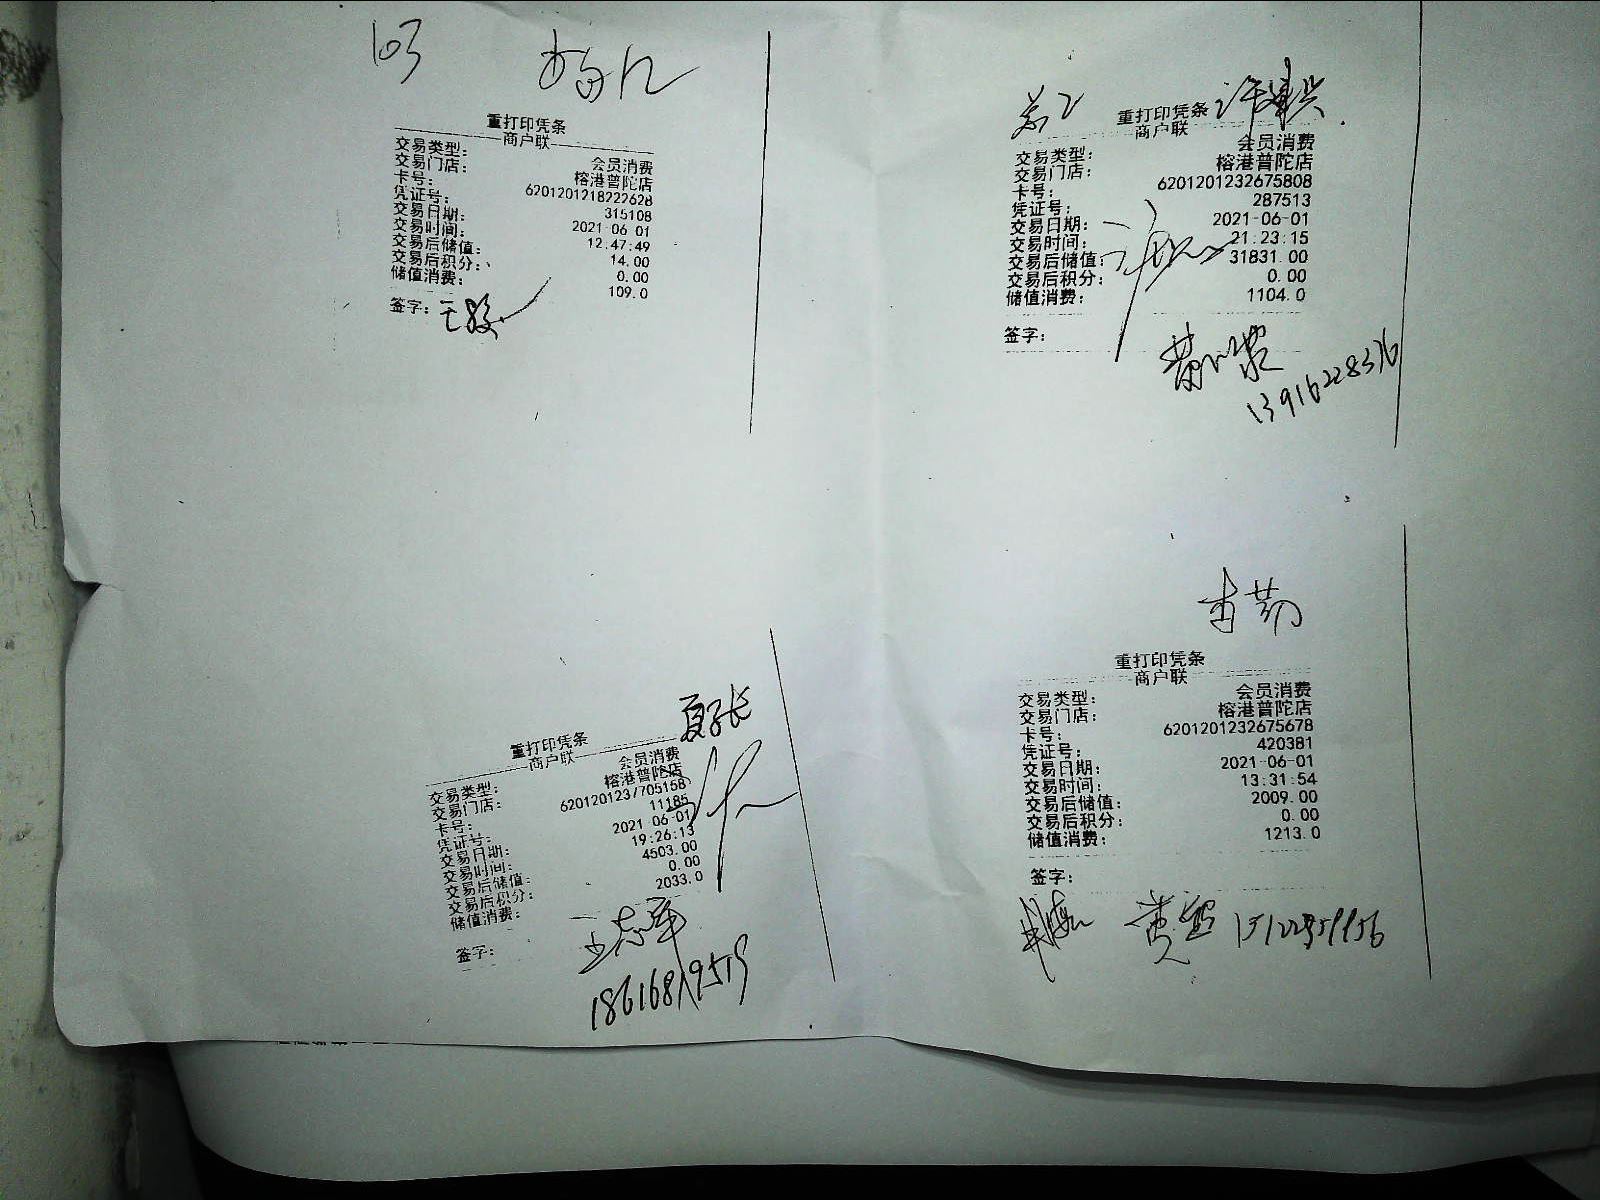 103
重打印凭条
商户联
交易类型： 会员消费
交易门店： 榕港普陀店
卡号： 6201201218222628
凭证号： 315108
交易日期： 2021-06-01
交易时间： 12:47:49
交易后储值： 14.00
交易后积分： 0.00
储值消费： 109.0
签字：
重打印凭条
商户联
交易类型： 会员消费
交易门店： 榕港普陀店
卡号： 6201201232675808
凭证号： 287513
交易日期： 2021-06-01
交易时间： 21:23:15
交易后储值： 31831.00
交易后积分： 0.00
储值消费： 1104.0
签字：
13916228376
夏子长
重打印凭条
商户联
交易类型： 会员消费
交易门店： 榕港普陀店
卡号： 6201201237705158
凭证号： 11185
交易日期： 2021-06-01
交易时间： 19:26:13
交易后储值： 4503.00
交易后积分： 0.00
储值消费： 2033.0
签字：
重打印凭条
商户联
交易类型： 会员消费
交易门店： 榕港普陀店
卡号： 6201201232675678
凭证号： 420381
交易日期： 2021-06-01
交易时间： 13:31:54
交易后储值： 2009.00
交易后积分： 0.00
储值消费： 1213.0
签字：